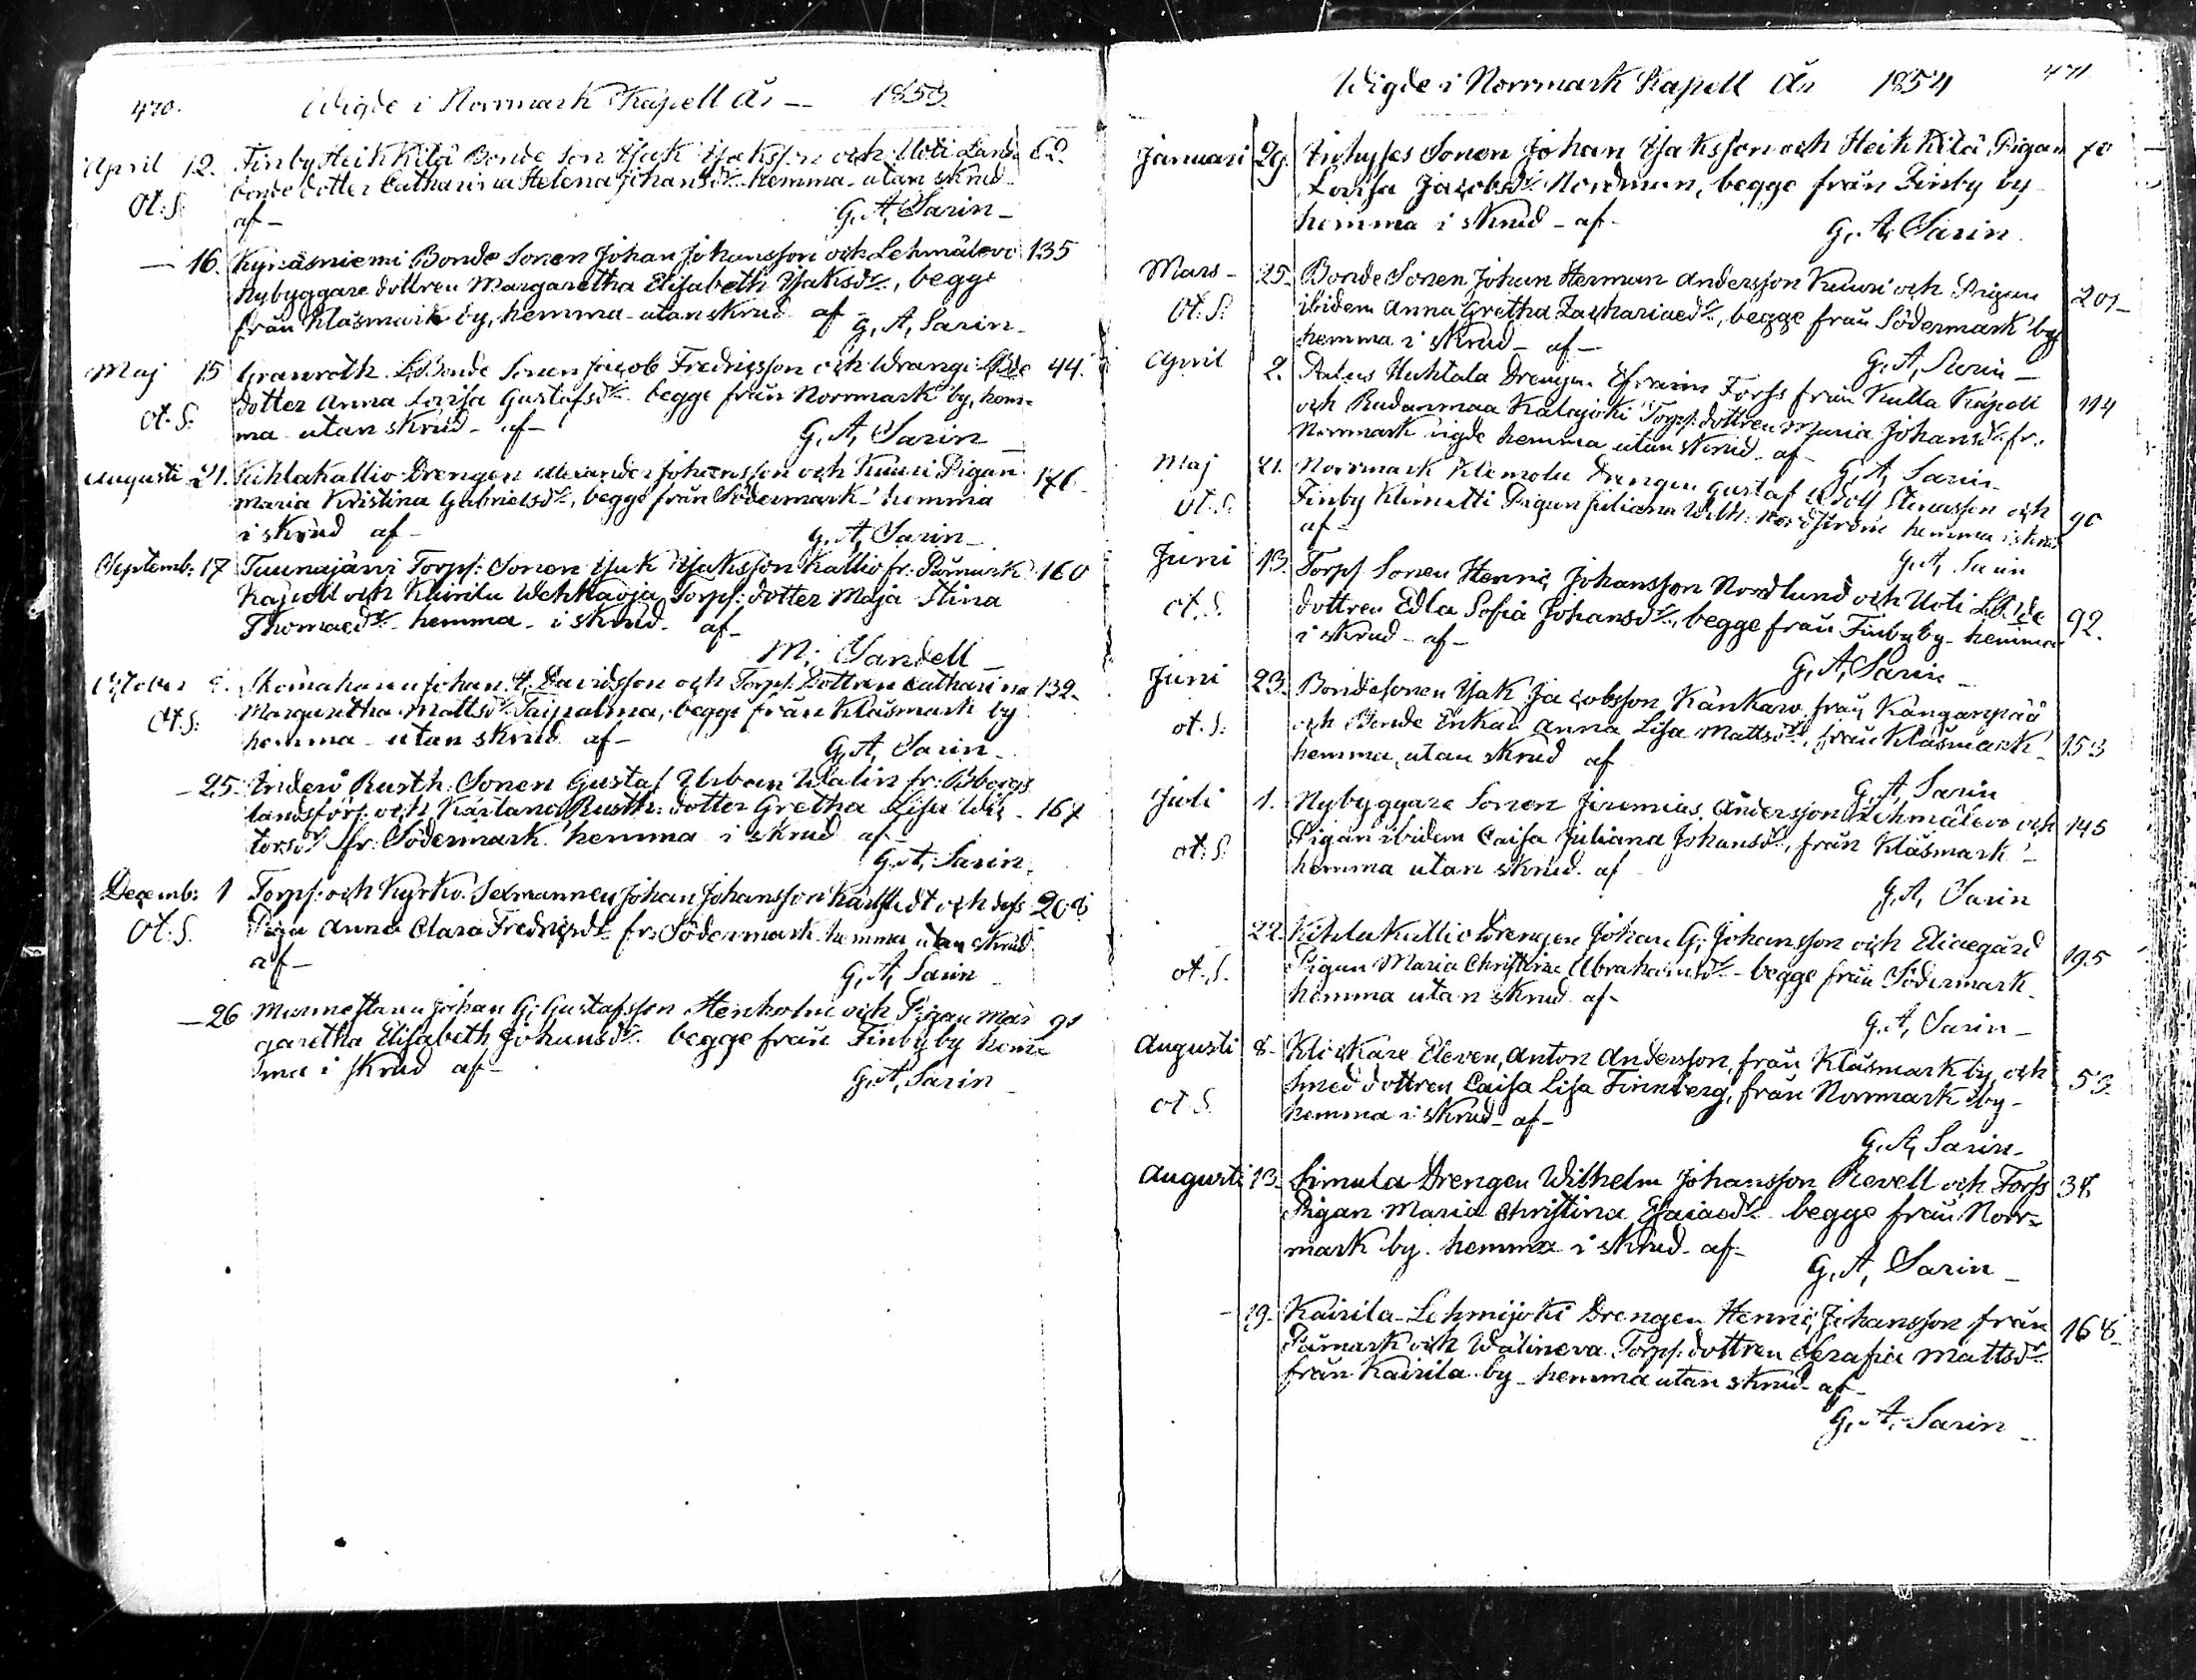 470. Wigde i Norrmark Kapell År — 1853.
April 12. Finby Heikkilä Bonde Son Isak Isaksson och Uoti Lands 62.
bonde dotter Catharina Helena Johansdr. hemma utan skrud
ot. S. af — G. A. Sarin —
— 16. Kynäsniemi Bonde Sonen Johan Johansson och Lehmälevo 135
Nybyggare dottren Margaretha Elisabeth Isaksdr., begge
från Klåsmark by, hemma utan skrud af G. A. Sarin —
Maj 15 Granroth L. Bonde Sonen Jacob Fredricsson och Wrangi Bde 44.
dotter Anna Lovisa Gustafsdr. begge från Norrmark by, hem=
ot. S. ma utan skrud — af — G. A. Sarin —
Augusti 21. Kihlakallio Drengen Alexander Johansson och Kuuri Pigan 176
Maria Kristina Gabrielsdr., begge från Södermark hemma
i skrud af — G. A. Sarin —
Septemb: 17 Tuunajärvi Torp: Sonen Isak Isaksson Kallio fr: Påmark 160
Kapell och Kairila Wehkaoja Torp: dotter Maja Stina
Thomaedr. hemma i skrud af —
M: Sandell —
October Skomakaren Johan A. Davidsson och Torp. Dottren Catharina 132
Margaretha Mattsdr. Taipalma, begge från Klåsmark by
ot. S: hemma utan skrud af — G. A. Sarin —
— 25. Rusth. Sonen Gustaf Urban Walin fr: Bborgs
landsförs: och Kärlana Rusth: dotter Gretha Lisa Wic- 167
torsdr. fr: Södermark hemma i skrud af —
G. A. Sarin.
Decemb: 1 Torp: och Kyrko Sexmannen Johan Johansson Karlstedt och dess 208
ot. S. Piga Anna Clara Fredricsdr. fr: Södermark hemma utan skrud
af — G. A. Sarin
— 26 Johan G. Gustafsson Stenholm och Pigan Mar 91
garetha Elisabeth Johansdr. begge från Finby by hem=
ma i skrud af — G. A. Sarin —
Wigde i Norrmark Kapell År 1854 471.
Januari 29. Sonen Johan Isaksson och Heikkilä Pigan 70
Lovisa Jacobsdr. Nordman, begge från Finby by
hemma i skrud — af — G. A. Sarin.
Mars — 25. Bonde Sonen Johan Herman Andersson Kuuri och Pigan 201
ot. S. ibidem Anna Gretha Zachariaedr., begge från Södermark by
hemma i skrud — af — G. A. Sarin —
April 2. Huhtala Drengen Efraim Forss från Kulla Kapell 114
och Rudanmaa Kalajoki Torp: dottren Maria Johansdr. fr:
Norrmark vigde hemma utan skrud af — G. A. Sarin
Maj 21. Norrmark Klemola Drengen Gustaf Adolf Stensson och
ot. S. Finby Klimetti Pigan Juliana Wilh: Nordström hemma i skrud 90
af — G. A. Sarin
Juni 13. Torp Sonen Henric Johansson Nordlund och Uoti L. Bde
ot. S. dottren Edla Sofia Johansdr., begge från Finby by hemma 92.
i skrud — af — G. A. Sarin —
Juni 23. Bondesonen Isak Jacobsson Kankaro från Kanganpää
ot. S: och Bonde Enkan Anna Lisa Mattsdr., från Klåsmark 153
hemma, utan skrud af G. A. Sarin
Juli 1. Nybyggare Sonen Jeremias Andersson Lehmälevo och 145
ot. S. Pigan ibidem Caisa Juliana Johansdr., från Klåsmark —
hemma utan skrud af G. A. Sarin
22. Kihlakallio Drengen Johan G. Johansson och Eliaegård 195
ot. S. Pigan Maria Christina Abrahamsdr. — begge från Södermark
hemma utan skrud af — G. A. Sarin —
Augusti 8. Klockare Eleven, Anton Andersson, från Klåsmark by och
ot S. Smed dottren Caisa Lisa Finnberg, från Norrmark by — 53
hemma i skrud — af — G. A. Sarin —
Augusti 13. Simula Drengen Wilhelm Johansson Revell och Forss 38
Pigan Maria Christina Esaiaedr. begge från Norr=
mark by. hemma i skrud — af — G. A. Sarin —
— 19. Kairila Lehmijoki Drengen Henric Johansson från 168
Påmark och Wälineva Torp: dottren Serafia Mattsdr.
från Kairila by — hemma utan skrud — af —
G. A. Sarin —